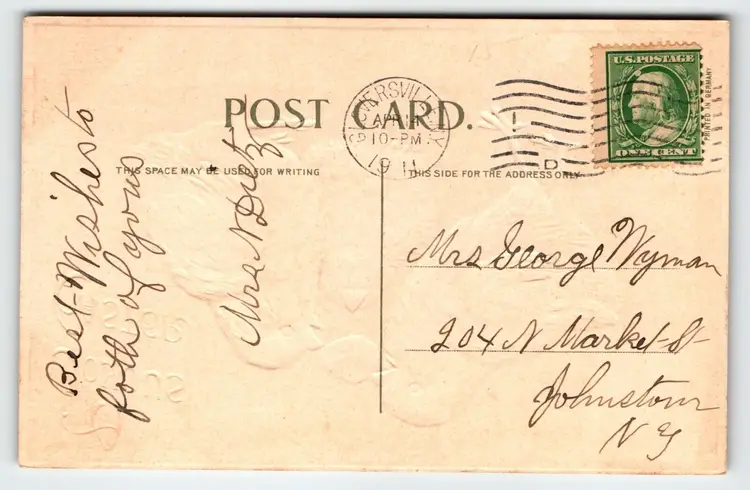 POST CARD.
THIS SPACE MAY BE USED FOR WRITING
THIS SIDE FOR THE ADDRESS ONLY
APR 14
10-PM
1911
D
U.S. POSTAGE
ONE CENT
PRINTED IN GERMANY
Best Wishes to
both of yous
Mrs N Dietz
Mrs George Wyman
204 N Market St
Johnstown
N Y